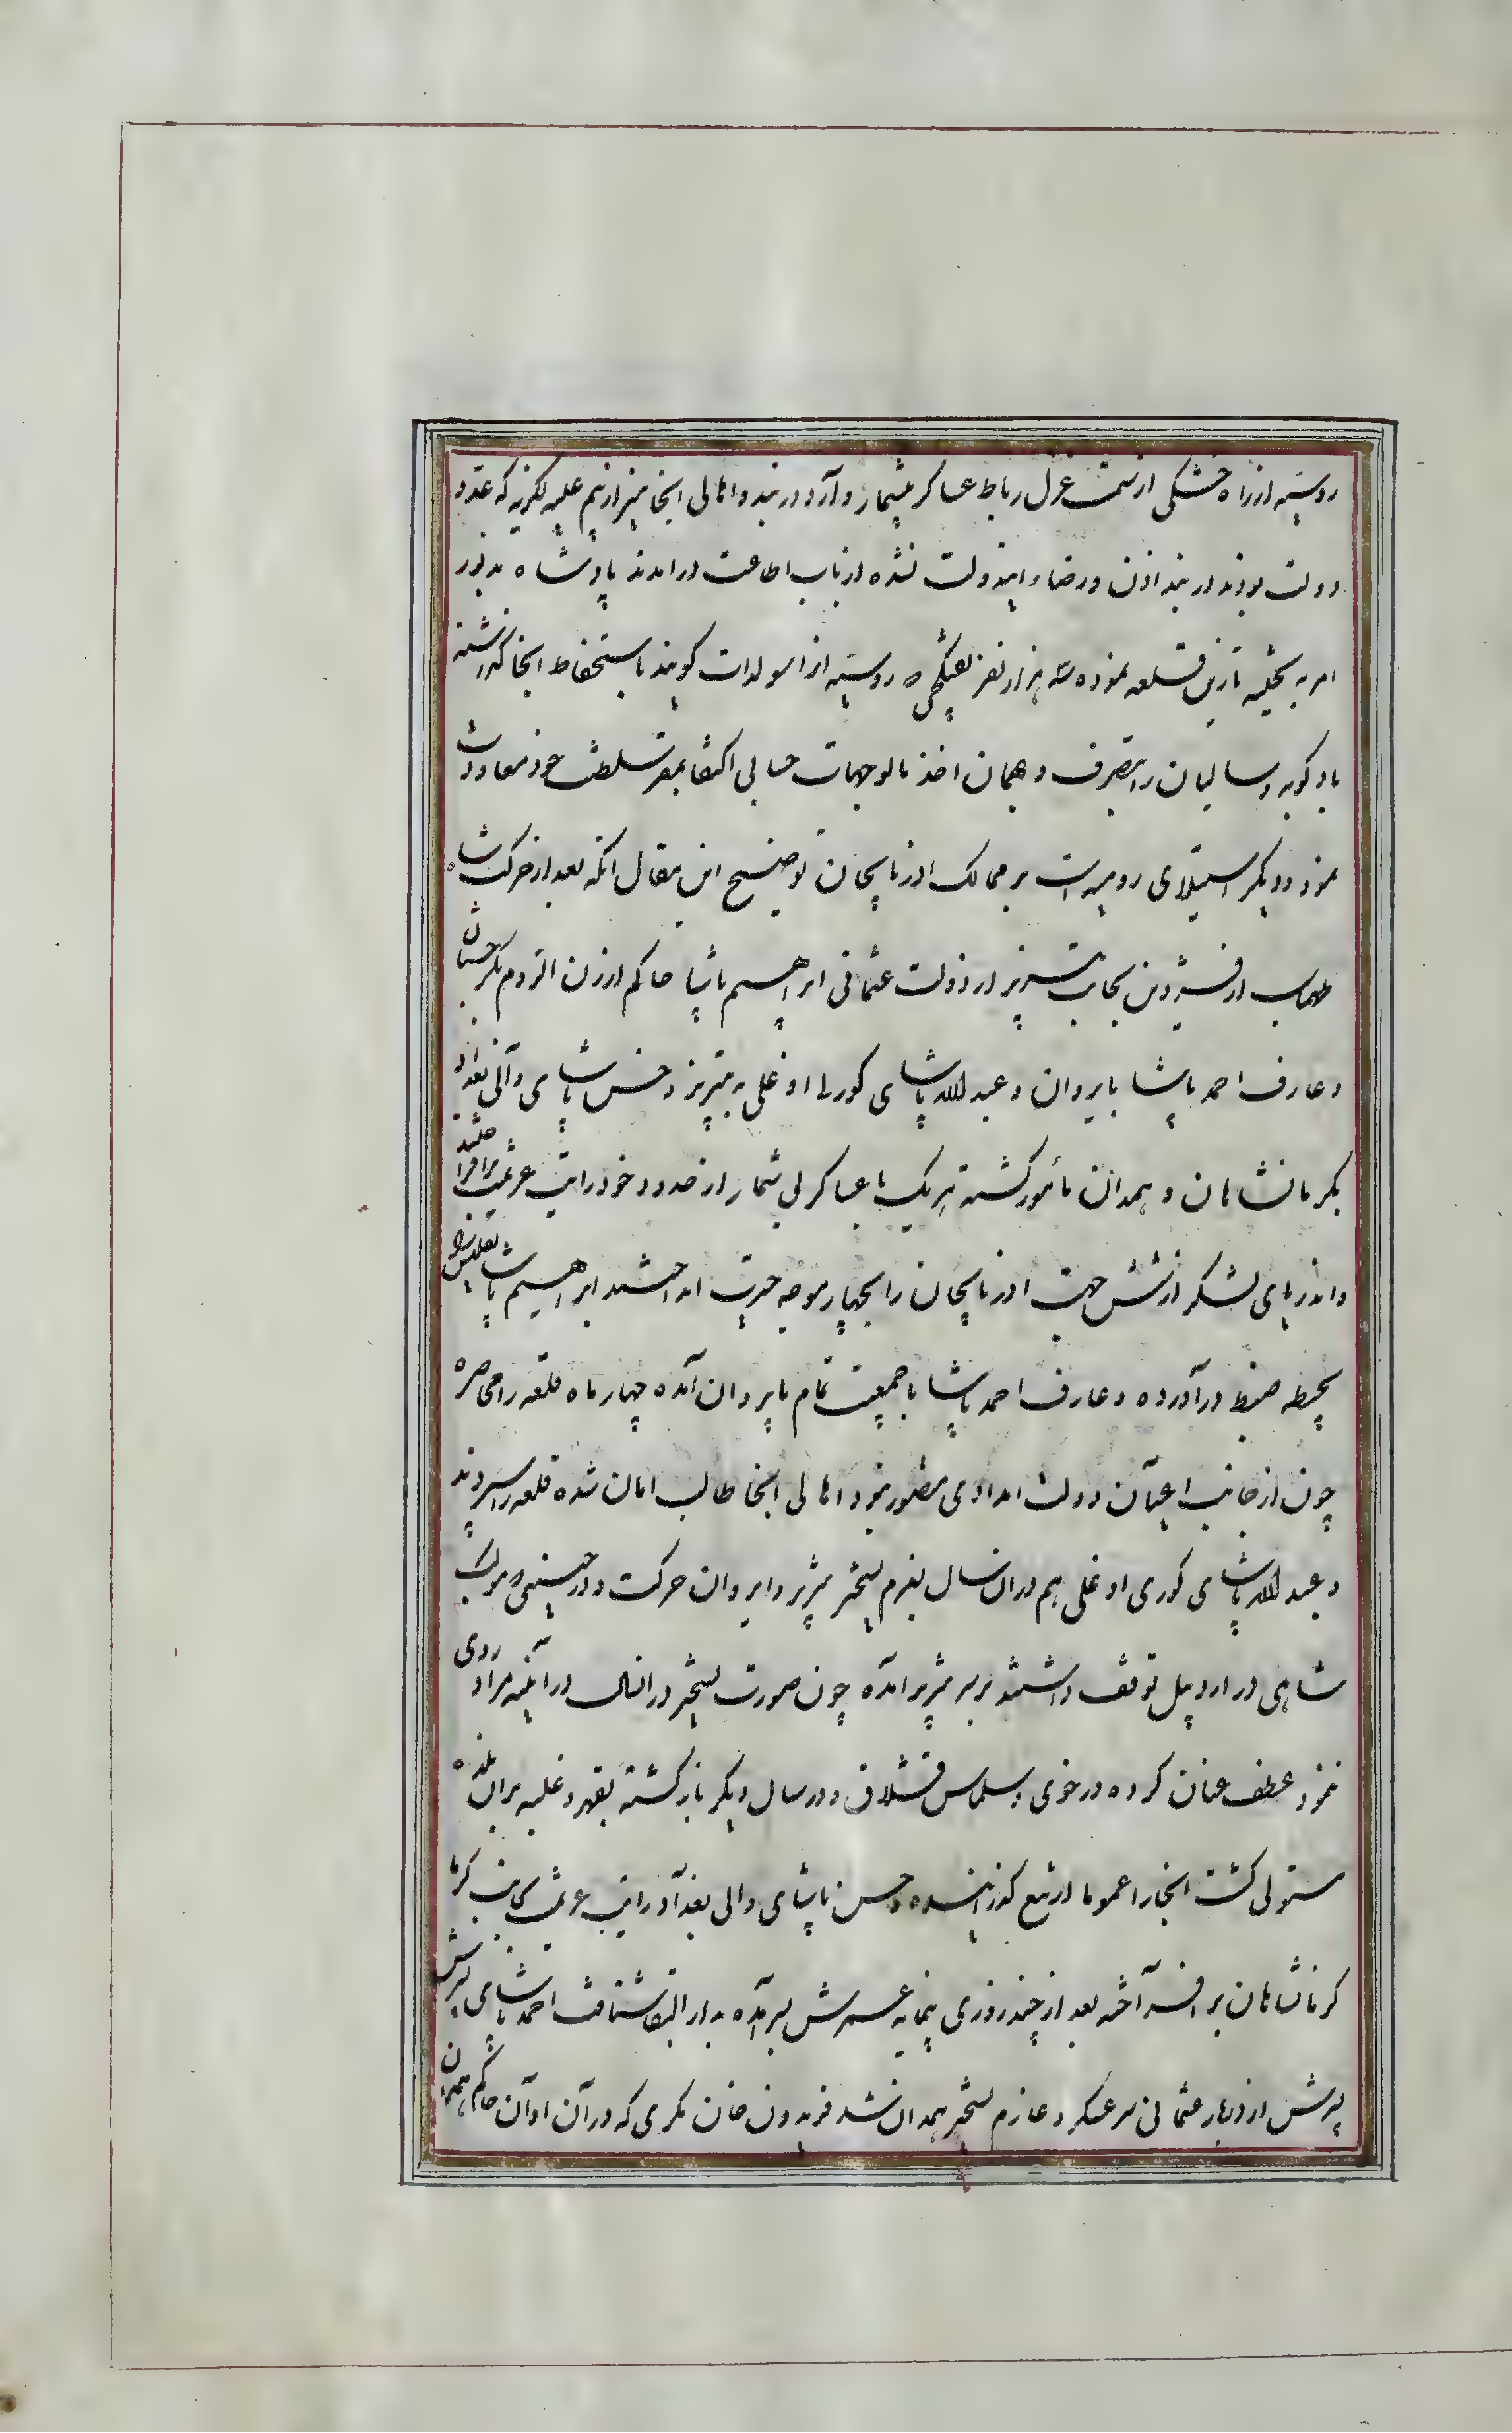 روسیه از راه خشکی از سمت غزل رباط عساکر بیشمار وارد دربند و اهالی انجا نیز از بیم غلبه لکزیه که عدو
دولت بودند در بند اذن و رضاء ایندولت نشده از باب اطاعت درامدند پادشاه مذبور
امر به تخلیه نارین قلعه نموده سه هزار نفر تفنکچی که روسیه انرا سولدات کویند باستحفاظ انجا کذاشته
بادکوبه و سالیان را بتصرف و بهمان اخذ مالوجهات حسابی اکتفا بمقر سلطنت خود معاودت
نمود و دیکر استیلای رومیه است بر ممالک اذربایجان توضیح این مقال انکه بعد از حرکت شاه
طهماسب از قزوین بجانب تبریز از دولت عثمانی ابراهیم پاشا حاکم ارزن الروم بکرجستان
و عارف احمد پاشا بایروان و عبدالله پاشای کورلی اوغلی به تبریز و حسن پاشای والی بغداد
بکرمانشاهان و همدان مأمور کشته هریک با عساکر بی شمار از حدود خود رایت عزیمت برافراختند
و اندریای لشکر از شش جهت اذربایجان را بچهار موجه حیرت انداختند ابراهیم پاشا تفلیس را
بحیطه ضبط درآورده و عارف احمد پاشا با جمعیت تمام بایروان آمده چهار ماه قلعه را محاصره
چون از جانب اعیان دولت امدادی بظهور نبود اهالی انجا طالب امان شده قلعه را سپردند
و عبدالله پاشای کوری اوغلی هم در ان سال بعزم تسخیر تبریز و ایروان حرکت و در حینی که موکب
شاهی در اردبیل توقف داشتند بر سر تبریز امده چون صورت تسخیر در انسال در آینه مراد روی
ننمود عطف عنان کرده در خوی و سلماس قشلاق و در سال دیکر باز کشته بقهر و غلبه بران بلده
مستولی کشت انجا را عموما از تیغ کذرانیده و حسن پاشای والی بغداد رایت عزیمت بجانب کرما
کرمانشاهان برافراخته بعد از چند روزی پیمانه عمرش لبر آمده بدار البقا شتافت احمد پاشای پسرش
پسرش از دربار عثمانی سرعسکر و عازم تسخیر همدان شد فریدون خان مکری که در آن اوآن حاکم همدان